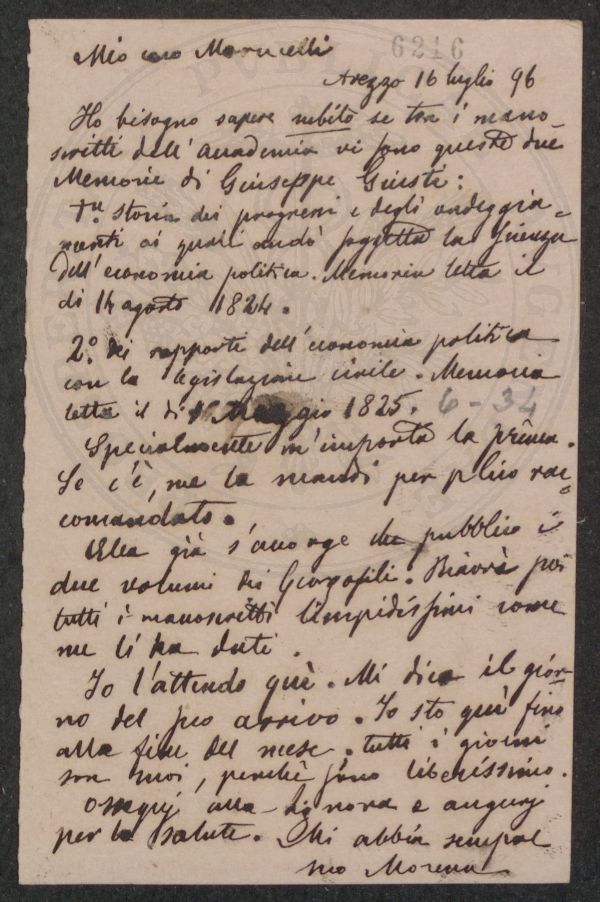 6216
Mio caro Marucelli
Arezzo 16 luglio 96
Ho bisogno sapere subito se tra i mano-
scritti dell'Accademia vi sono queste due
Memorie di Giuseppe Giusti:
1ª. Storia dei progressi e degli ondeggia=
menti ai quali andò soggetta la scienza
dell'economia politica. Memoria letta il
dì 14 agosto 1824.
2º. dei rapporti dell'economia politica
con la legislazione civile. Memoria
letta il dì Maggio 1825. 6-34
Specialmente m'importa la prima.
Se c'è, me la mandi per plico rac=
comandato.
Ella già s'accorge che pubblico i
due volumi dei Georgofili. Riavrà poi
tutti i manoscritti limpidissimi come
me li ha dati.
Io l'attendo quì. Mi dica il gior-
no del suo arrivo. Io sto quì fino
alla fine del mese. tutti i giorni
son suoi, perchè sono liberissimo.
Ossequj alla Signora e augurj
per la salute. Mi abbia sempre
suo Morena